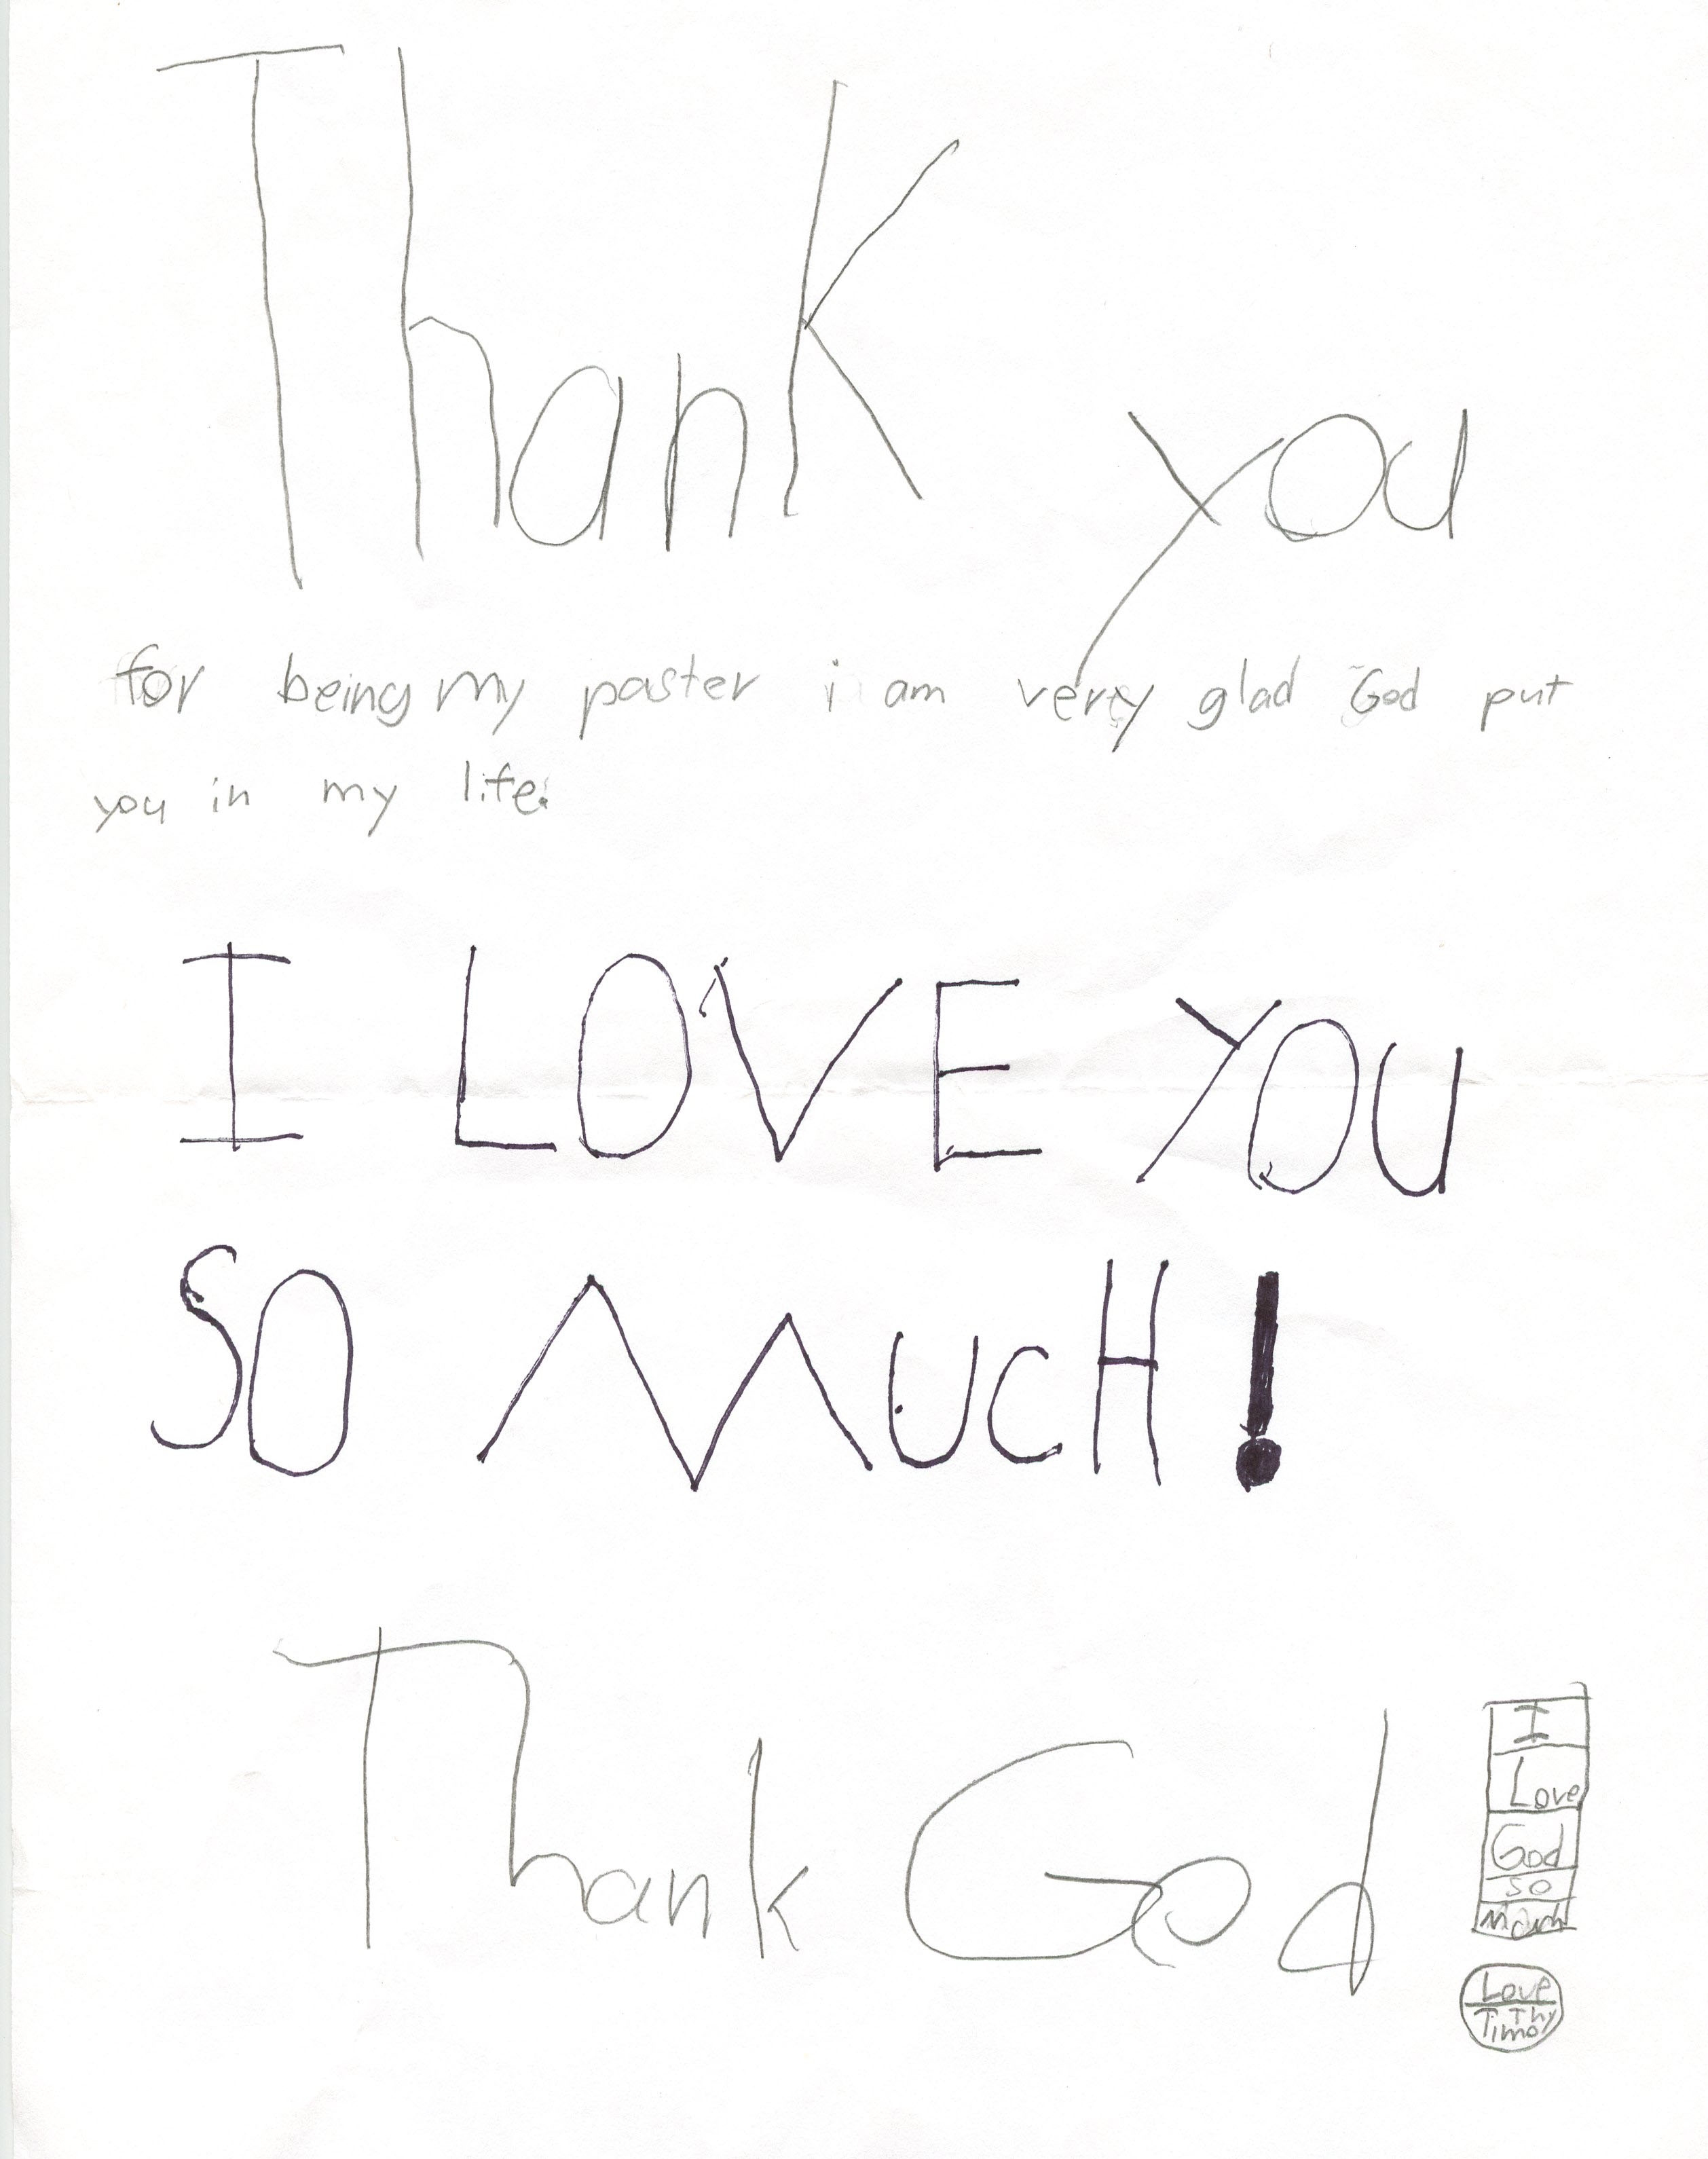 Thank you
for being my paster i am very glad God put
you in my life.
I LOVE YOU
SO MUCH!
Thank God
I
Love
God
so
much
Love
Timothy